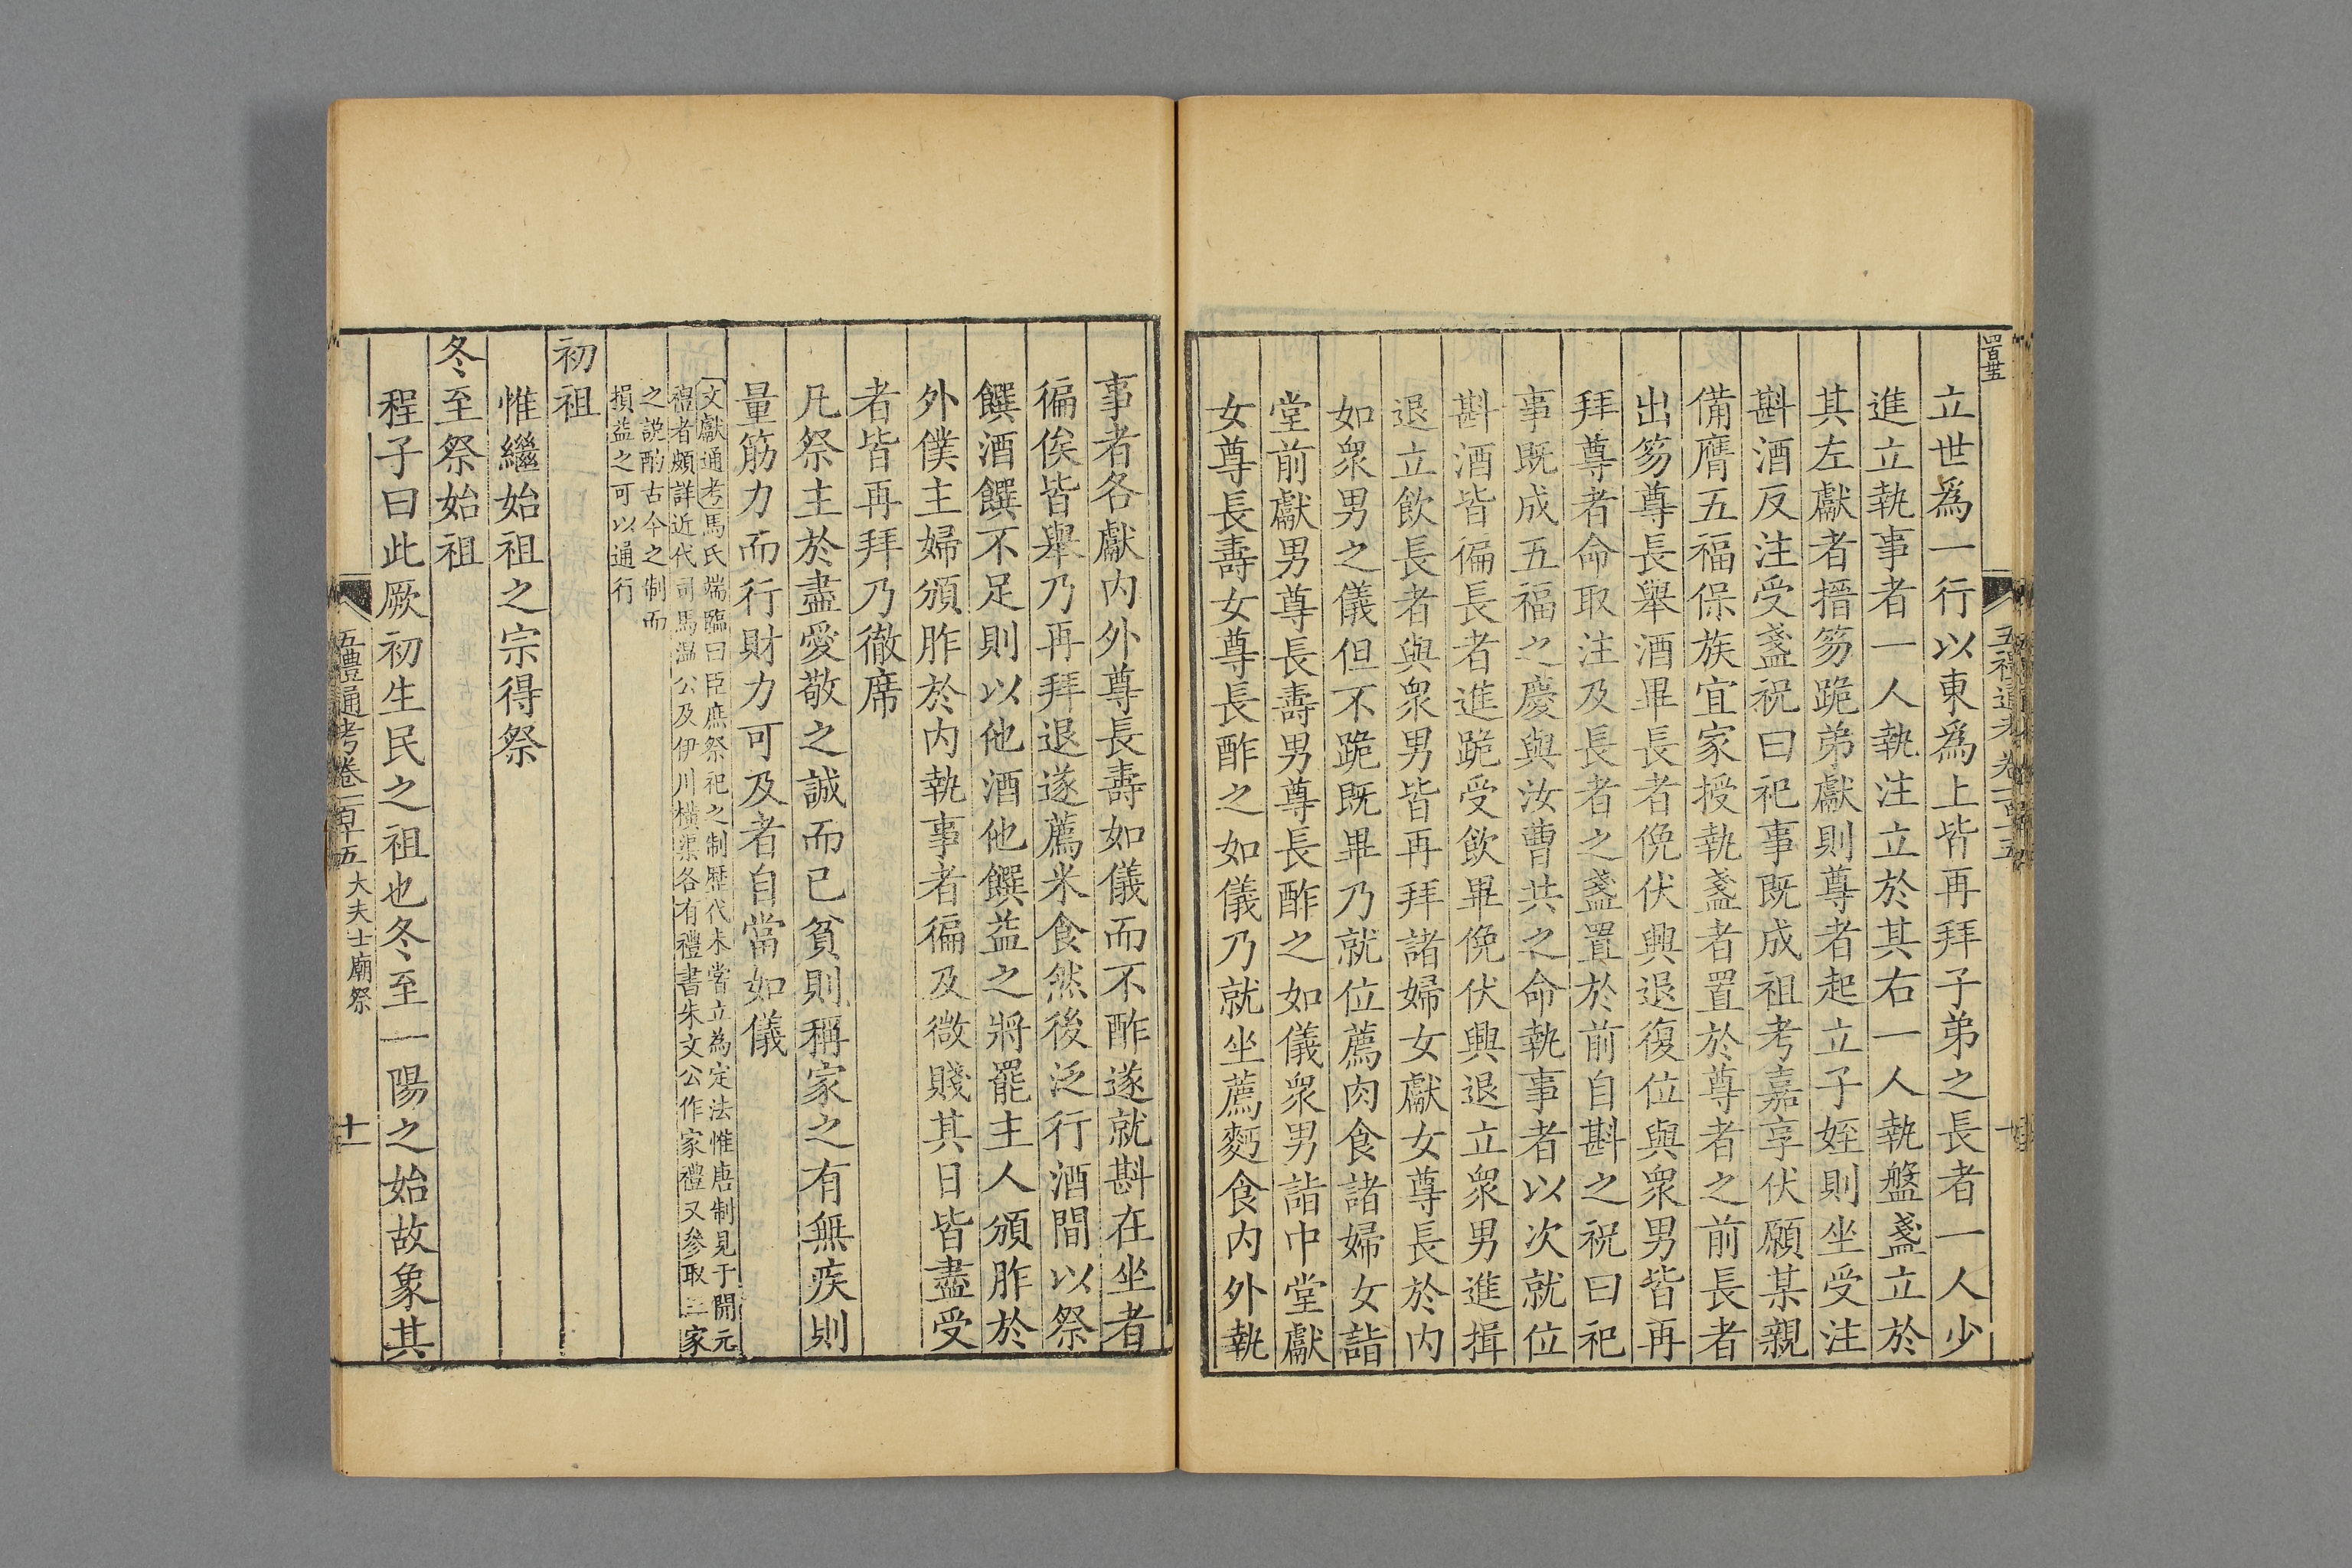 四百廿五
立世爲一行以東爲上皆再拜子弟之長者一人少
進立執事者一人執注立於其右一人執盤盞立於
其左獻者搢笏跪弟獻則尊者起立子姪則坐受注
斟酒反注受盞祝曰祀事既成祖考嘉享伏願某親
備膺五福保族宜家授執盞者置於尊者之前長者
出笏尊長舉酒畢長者俛伏興退復位與衆男皆再
拜尊者命取注及長者之盞置於前自斟之祝曰祀
事既成五福之慶與汝曹共之命執事者以次就位
斟酒皆徧長者進跪受飲畢俛伏興退立衆男進揖
退立飲長者與衆男皆再拜諸婦女獻女尊長於内
如衆男之儀但不跪既畢乃就位薦肉食諸婦女詣
堂前獻男尊長壽男尊長酢之如儀衆男詣中堂獻
女尊長壽女尊長酢之如儀乃就坐薦麪食内外執
事者各獻内外尊長壽如儀而不酢遂就斟在坐者
徧俟皆舉乃再拜退遂薦米食然後泛行酒間以祭
饌酒饌不足則以他酒他饌益之將罷主人頒胙於
外僕主婦頒胙於内執事者徧及微賤其日皆盡受
者皆再拜乃徹席
凡祭主於盡愛敬之誠而已貧則稱家之有無疾則
量筋力而行財力可及者自當如儀
文獻通考馬氏端臨曰臣庶祭祀之制歷代未嘗立為定法惟唐制見于開元
禮者頗詳近代司馬溫公及伊川橫渠各有禮書朱文公作家禮又參取三家
之說酌古今之制而
損益之可以通行
初祖
惟繼始祖之宗得祭
冬至祭始祖
程子曰此厥初生民之祖也冬至一陽之始故象其
五禮通考卷一百十五 大夫士廟祭 十